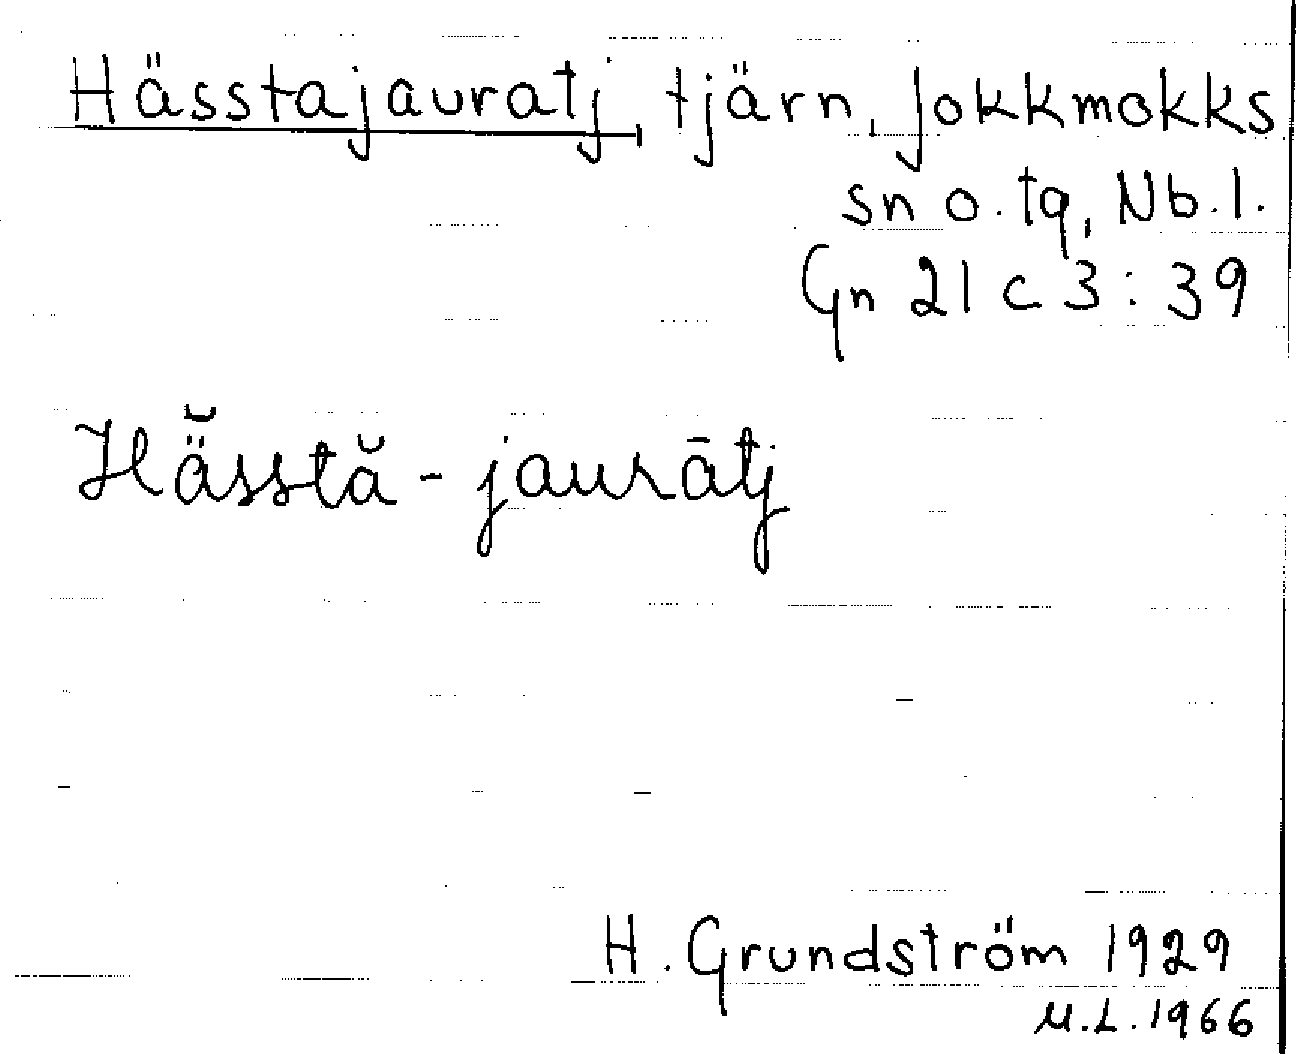 Hässtajauratj, tjärn, Jokkmokks
sn o. tg, Nb.l.
Gn 21 c 3:39
Hä̆sstă-jaurātj
H. Grundström 1929
M.L.1966